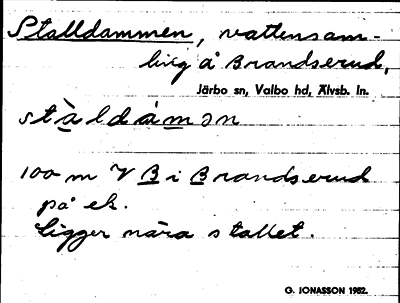 Stalldammen, vattensam-
ling å Brandserud,
Järbo sn, Valbo hd, Älvsb. ln.
stàldám̲ən
100 m V B i Brandserud
på ek.
Ligger nära stallet.
G. JONASSON 1982.